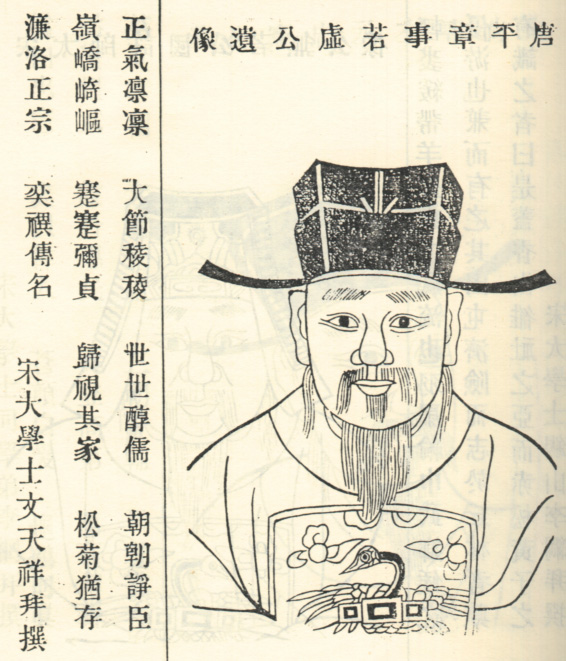 平章事若虛公遺像
正氣凛凛 大節稜稜 世世醇儒 朝朝諍臣
嶺嶠崎嶇 蹇蹇彌貞 歸視其家 松菊猶存
濂洛正宗 奕禩傳名
宋大學士文天祥拜撰